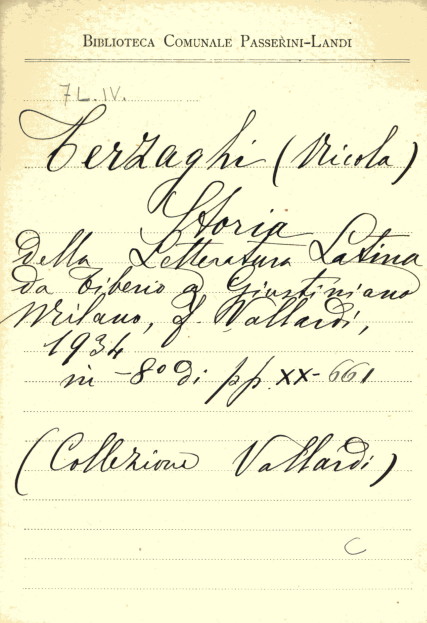 Biblioteca Comunale Passerini-Landi
7 L. IV.
Terzaghi (Nicola)
Storia
della Letteratura Latina
da Tiberio a Giustiniano
Milano, f. Vallardi,
1934
in -8° di pp. XX-661
(Collezione Vallardi)
C